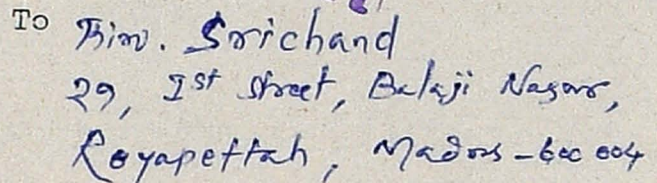 To Thiru. Srichand
29, Ist Street, Balaji Nagar,
Royapettah, Madras - 600 004